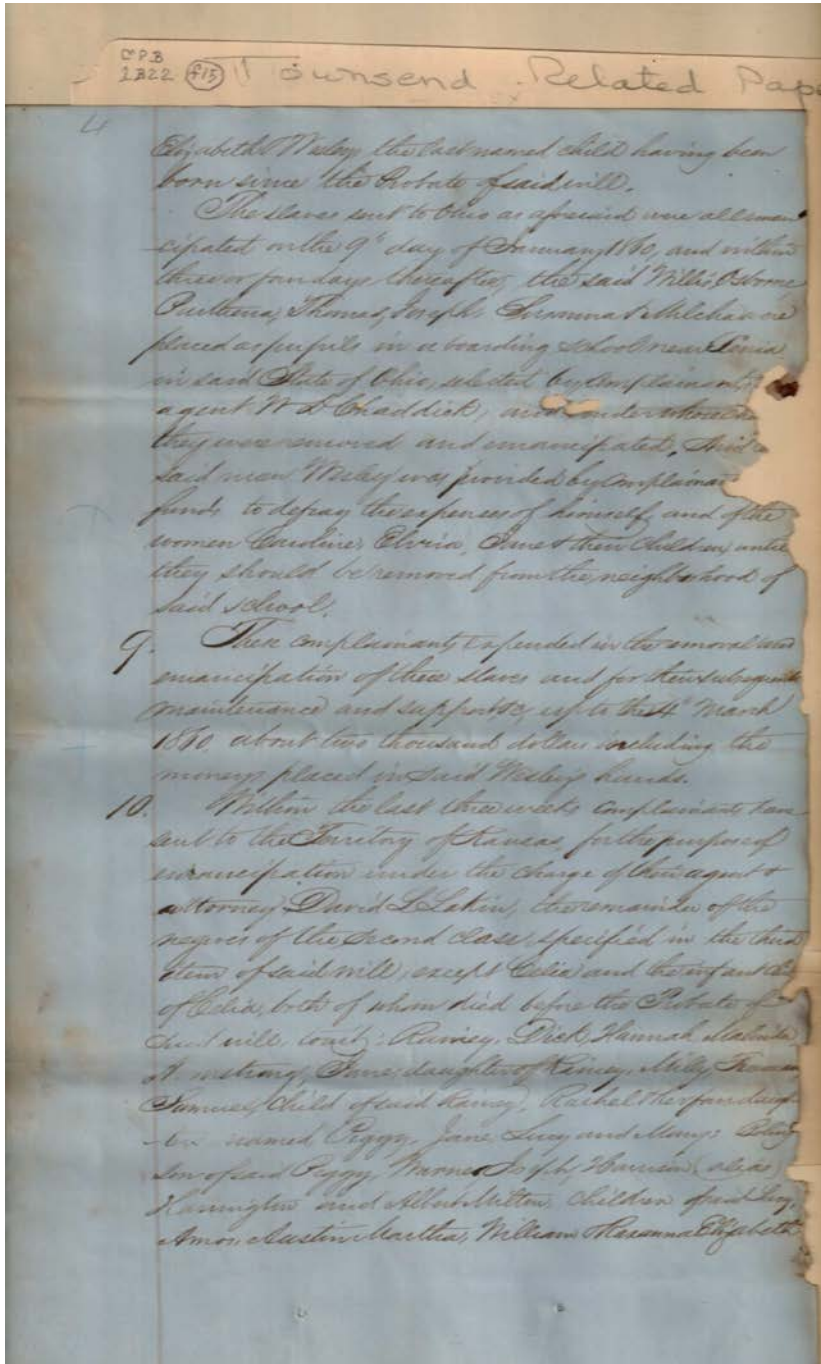 C.P.B
2B22 f15 Townsend Related Pap
4
Elizabeth & Wesley the last named child having been
born since the Probate of said will.
The slaves sent to Ohio as aforesaid were all eman
cipated on the 9th day of January 1860, and within
three or four days thereafter, the said Willis, Osborne
Parthena, Thomas, Joseph, Susanna & Milcha were
placed as pupils in a boarding school near Xenia
in said State of Ohio, selected by Complainants
agent W D Chaddick, and under whose
they were removed and emancipated. And
said man Wesley was provided by Complainan
funds to defray the expenses of himself and of the
women Caroline, Elvira, Jane & their children until
they should be removed from the neighborhood of
said school.
9. These complainants expended in the removal and
emancipation of these slaves and for their subsequent
maintenance and support &c, up to the 4th March
1860, about two thousand dollars including the
moneys placed in said Wesley's hands.
10. Within the last three weeks complainants have
sent to the Territory of Kansas, for the purpose of
emancipation under the charge of their agent &
attorney David L Lakin, the remainder of the
negroes of the second class, specified in the third
item of said will, except Celia and the infant
of Celia, both of whom died before the Probate of
said will, towit: Rainey, Dick, Hannah
Armstrong, Jane, daughter of Rainey, Milly
Samuel, child of said Rainey, Rachel & her four daugh
ters named Peggy, Jane, Lucy and Mary:
son of said Peggy, Warner Joseph, Harrison (alias)
Harrington and Albert Milton, children of said Lucy,
Amos, Austin, Martha, William & Roxanna Elizabeth